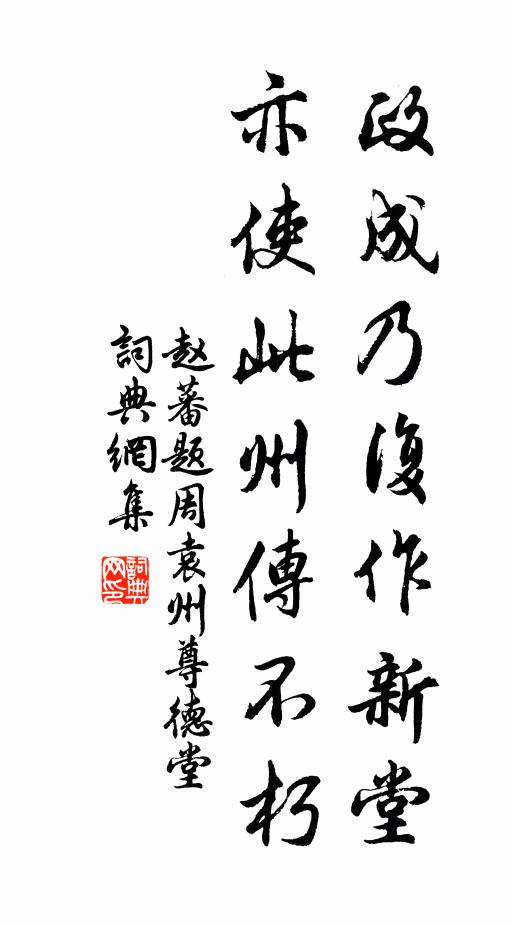 政成乃復作新堂
亦使此州傳不朽
赵蕃题周袁州尊德堂
詞典網集
詞典网印